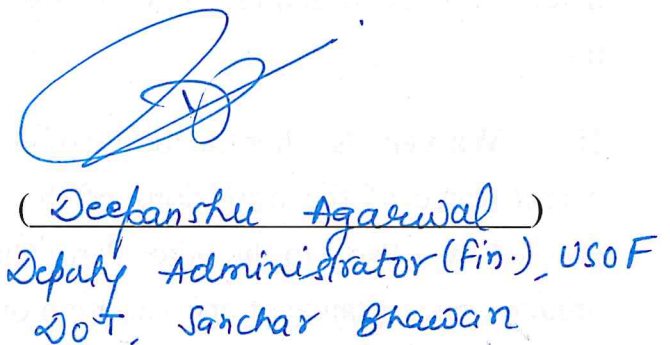 ( Deepanshu Agarwal )
Deputy Administrator (Fin.), USOF
DoT, Sanchar Bhawan